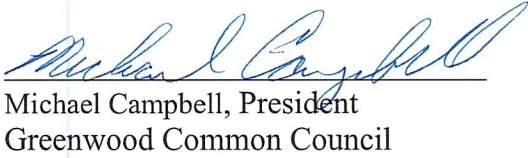 Michael Campbell
Michael Campbell, President
Greenwood Common Council